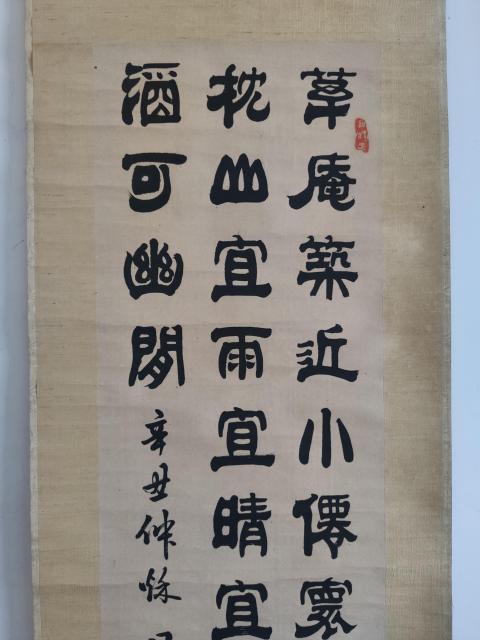 草庵築近小僊寰
枕山宜雨宜晴宜
酒可幽閒
辛丑仲秌